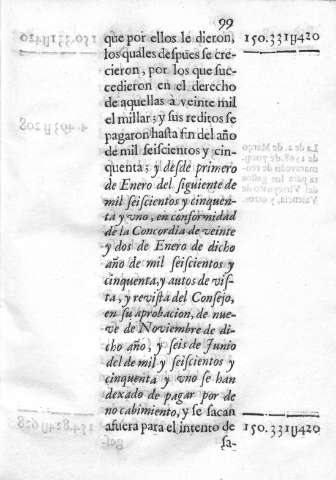 99
que por ellos le dieron, 150.331ɥ420
los quales despues se cre-
cieron, por los que suc-
cedieron en el derecho
de aquellas à veinte mil
el millar; y sus reditos se
pagaron hasta fin del año
de mil seiscientos y cin-
quenta; y desde primero
de Enero del siguiente de
mil seiscientos y cinquen-
ta y vno, en conformidad
de la Concordia de veinte
y dos de Enero de dicho
año de mil seiscientos y
cinquenta, y autos de vis-
ta, y revista del Consejo,
en su aprobacion, de nue-
ve de Noviembre de di-
cho año, y seis de Junio
del de mil y seiscientos y
cinquenta y vno se han
dexado de pagar por de
no cabimiento, y se sacan
afuera para el intento de 150.331ɥ420
sa-